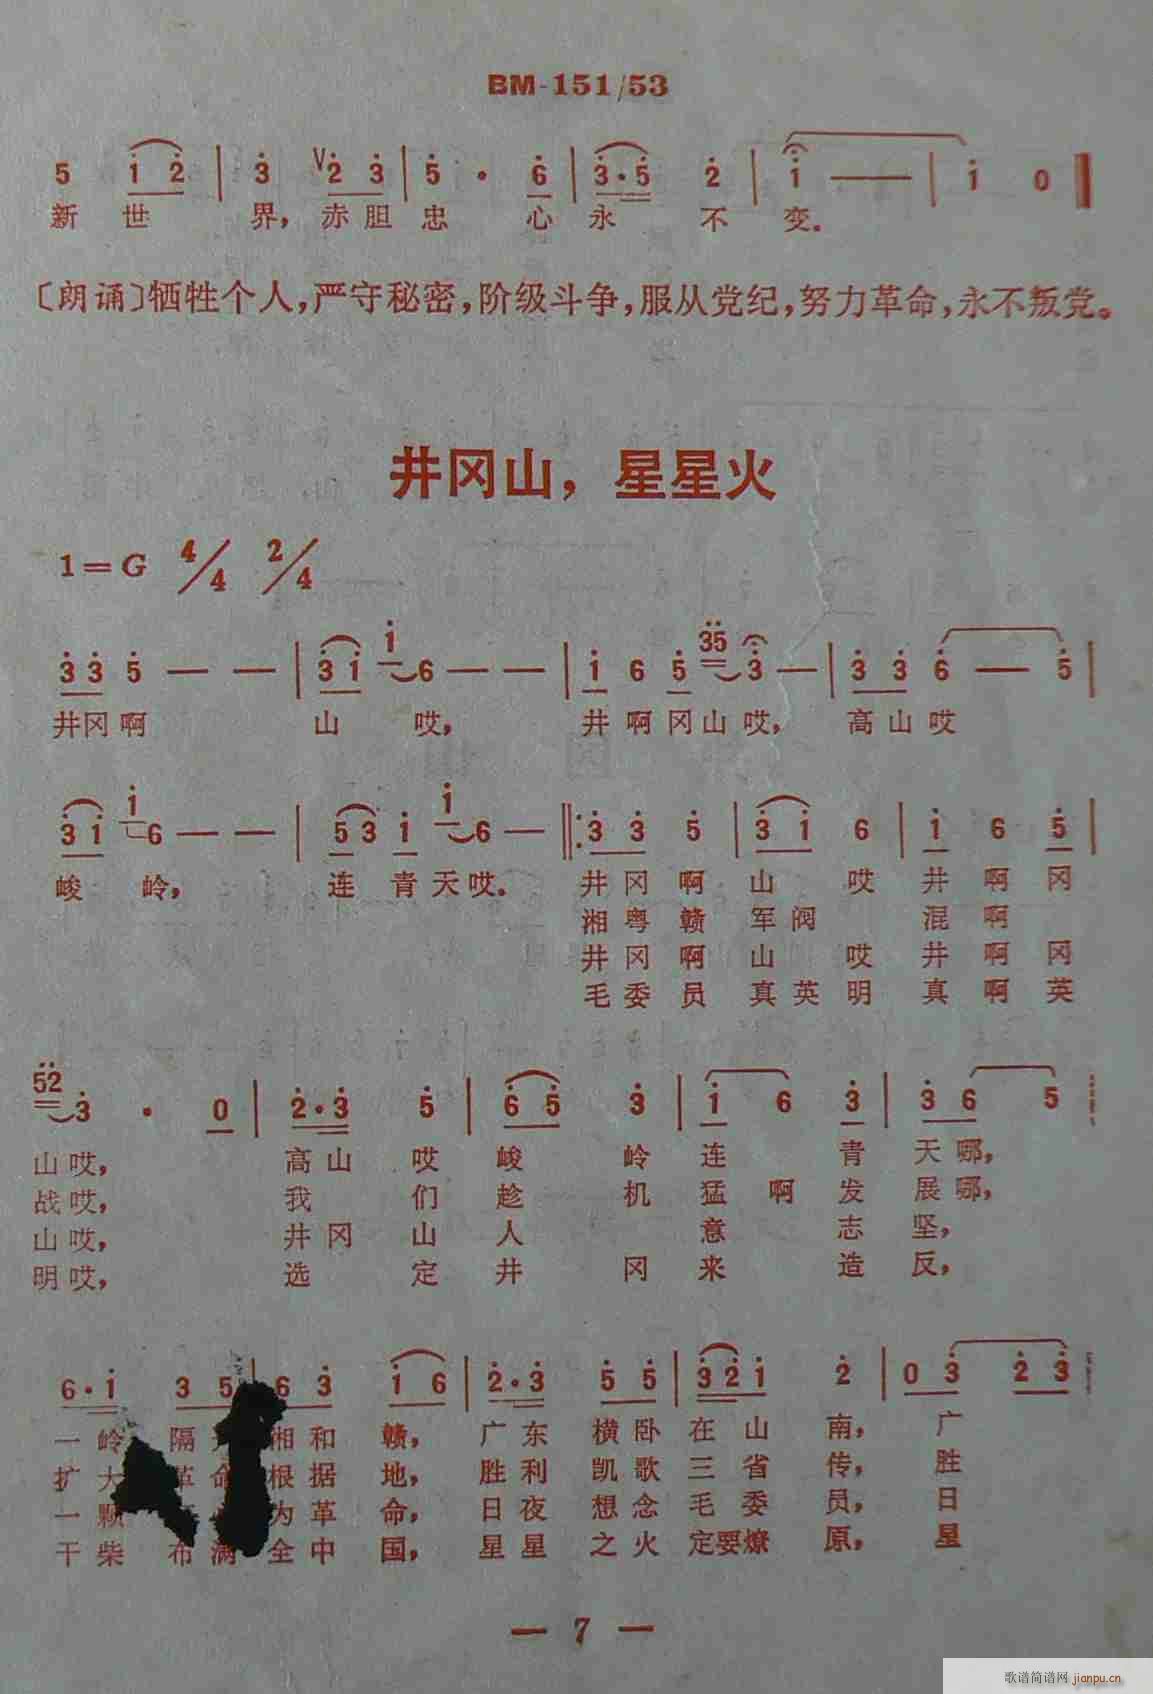 BM-151/53
5 1 2 | 3 V2 3 | 5 · 6 | 3·5 2 | 1 — | 1 0
新 世 界, 赤 胆 忠 心 永 不 变。
〔朗诵〕牺牲个人,严守秘密,阶级斗争,服从党纪,努力革命,永不叛党。
井冈山, 星星火
1=G 4/4 2/4
3 3 5 — — | 3 1 1 6 — — | 1 6 5 35 3 — | 3 3 6 — 5 |
井冈啊 山 哎, 井啊冈山哎, 高山哎
3 1 1 6 — — | 5 3 1 1 6 — ‖: 3 3 5 | 3 1 6 | 1 6 5 |
峻 岭, 连 青 天哎。 井 冈 啊 山 哎 井 啊 冈
湘 粤 赣 军 阀 混 啊
井 冈 啊 山 哎 井 啊 冈
毛 委 员 真 英 明 真 啊 英
52 3 · 0 | 2·3 5 | 6 5 3 | 1 6 3 | 3 6 5
山哎, 高山 哎 峻 岭 连 青 天哪,
战哎, 我 们 趁 机 猛 啊 发 展哪,
山哎, 井冈 山 人 意 志 坚,
明哎, 选 定 井 冈 来 造 反,
6·1 3 5 | 6 3 1 6 | 2·3 5 5 | 3 2 1 2 | 0 3 2 3
一 岭 隔 湘 和 赣, 广 东 横 卧 在 山 南, 广
扩 大 革 命 根 据 地, 胜 利 凯 歌 三 省 传, 胜
一 颗 为 革 命, 日 夜 想 念 毛 委 员, 日
干 柴 布 满 全 中 国, 星 星 之 火 定要燎 原, 星
— 7 —
歌谱简谱网 jianpu.cn